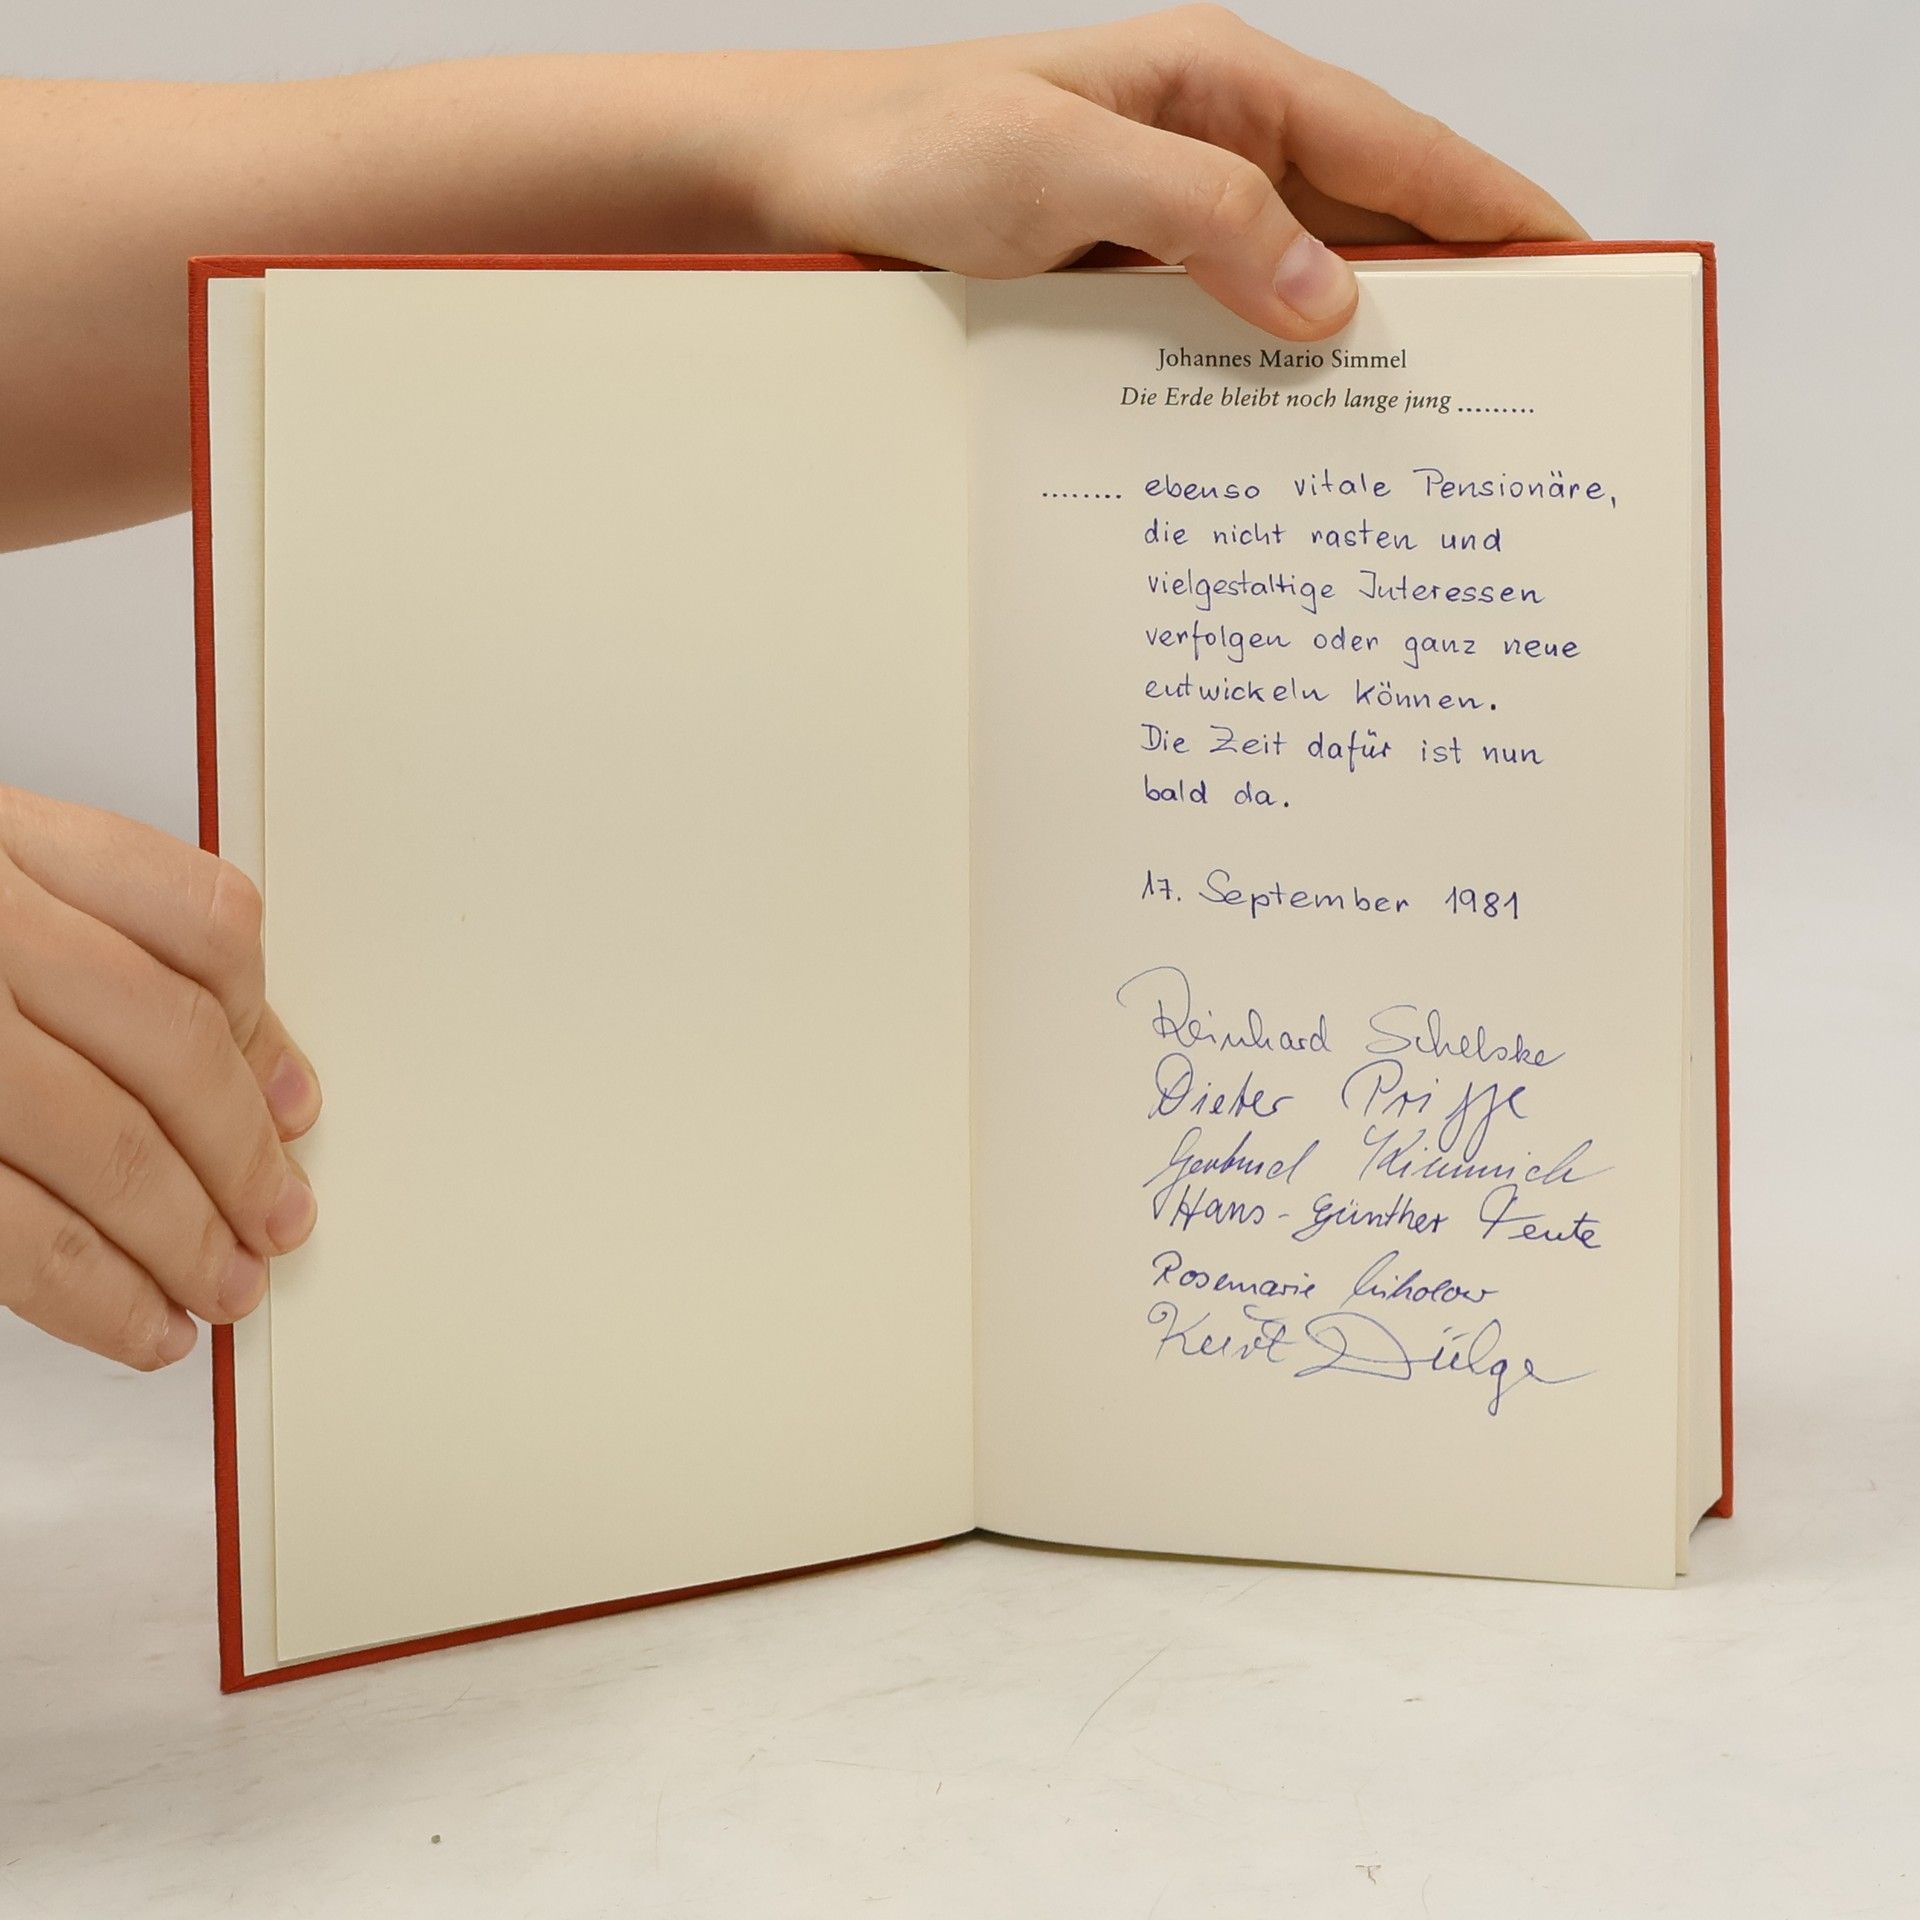 Johannes Mario Simmel
Die Erde bleibt noch lange jung .........
........ ebenso vitale Pensionäre,
die nicht rasten und
vielgestaltige Interessen
verfolgen oder ganz neue
entwickeln können.
Die Zeit dafür ist nun
bald da.
17. September 1981
Reinhard Schelske
Dieter
Gertrud Kimmich
Hans-Günther Tente
Rosemarie
Kurt Dülge